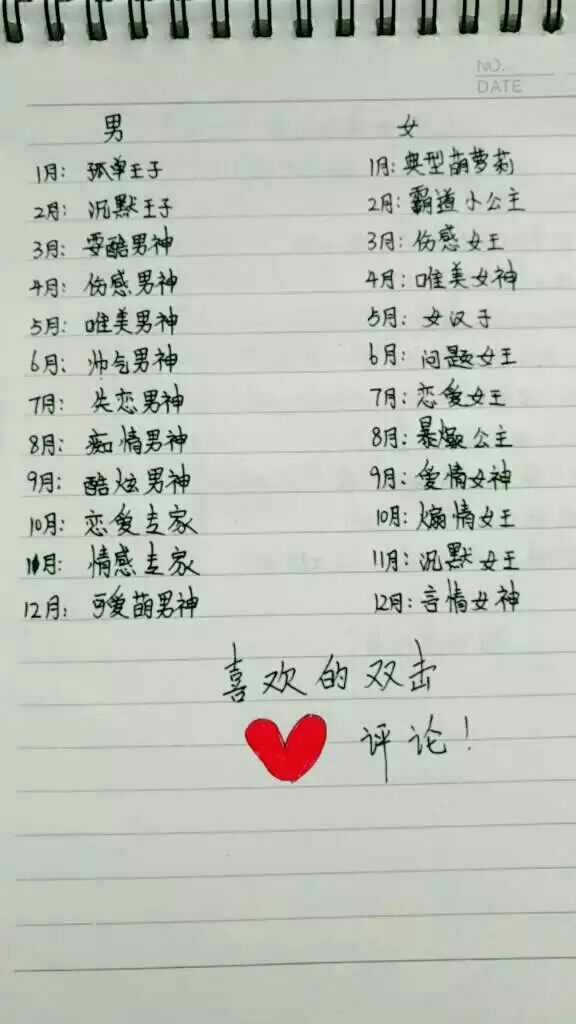 NO.
DATE
男 女
1月: 孤单王子 1月: 典型萌萝莉
2月: 沉默王子 2月: 霸道小公主
3月: 耍酷男神 3月: 伤感女王
4月: 伤感男神 4月: 唯美女神
5月: 唯美男神 5月: 女汉子
6月: 帅气男神 6月: 问题女王
7月: 失恋男神 7月: 恋爱女王
8月: 痴情男神 8月: 暴燥公主
9月: 酷炫男神 9月: 爱情女神
10月: 恋爱专家 10月: 煽情女王
11月: 情感专家 11月: 沉默女王
12月: 可爱萌男神 12月: 言情女神
喜欢的双击
评论!